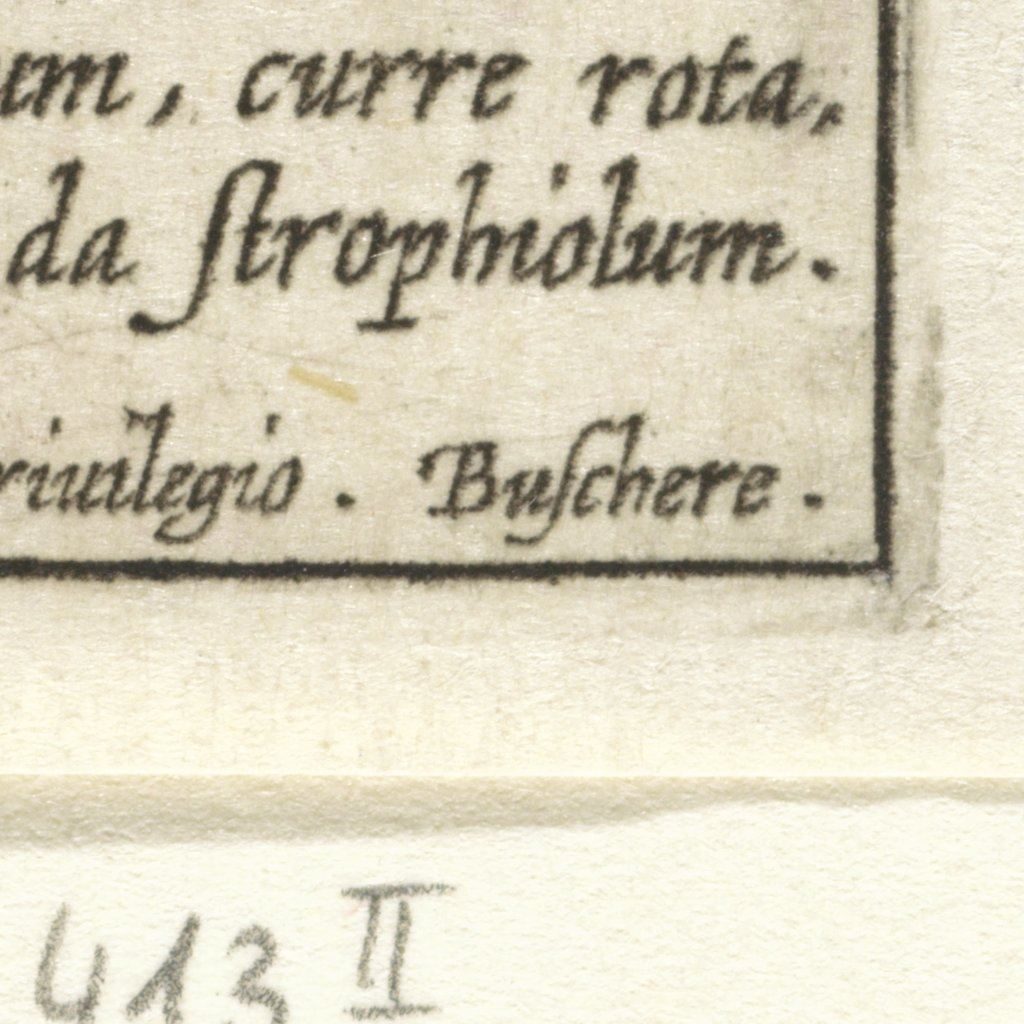 um, curre rota,
da ſtrophiolum.
riuilegio. Buſchere.
413 II